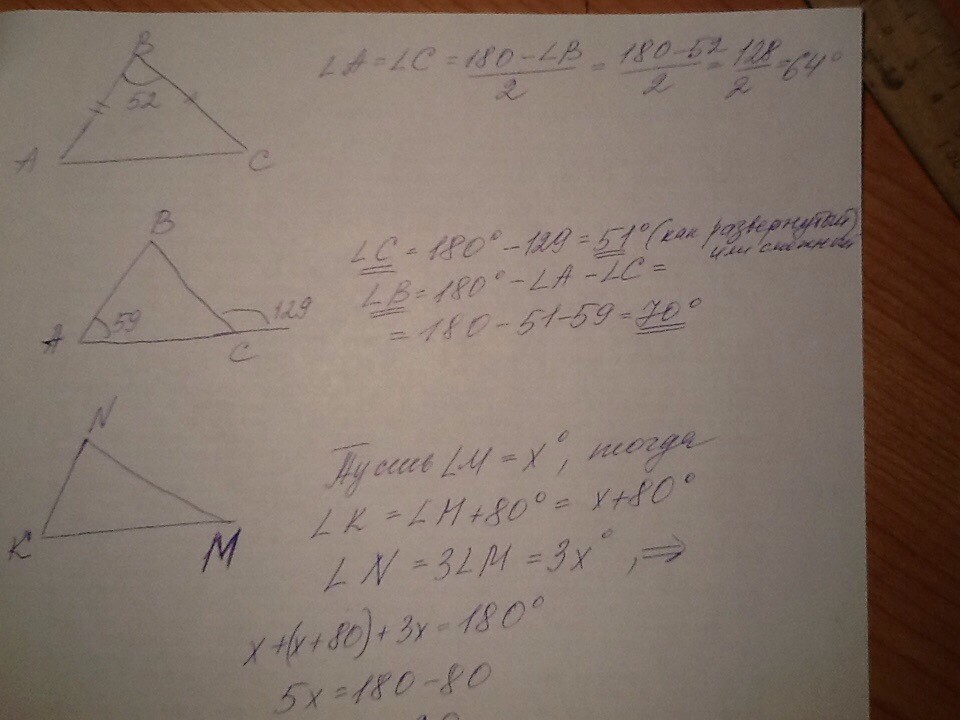 B
52
A
C
∠A=∠C = (180-∠B)/2 = (180-52)/2 = 128/2 =64°
B
A
59
129
C
∠C = 180° - 129 = 51° (как развернутый
или смежной
∠B = 180° - ∠A - ∠C =
= 180 - 51 - 59 = 70°
N
K
M
Пусть ∠M = x°, тогда
∠K = ∠M + 80° = x + 80°
∠N = 3∠M = 3x°, ⇒
x + (x + 80) + 3x = 180°
5x = 180 - 80